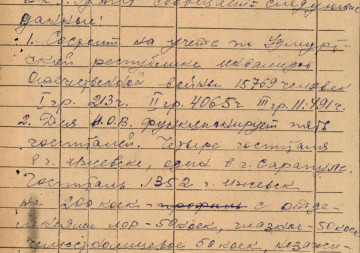 следующие
данные:
1. Состоит на учете по Удмурт-
ской республике инвалидов
Отечественной войны 15769 человек
I гр. 213ч. II гр. 4065ч III гр. 11.491ч.
2. Для И.О.В. функционирует пять
госпиталей. Четыре госпиталя
в г. Ижевске, один в г. Сарапуле.
Госпиталь 1352 г. Ижевск
на 200 коек с отде-
лениями лор-50 коек, глазное-50 коек
челюстнолицевое 50 коек,